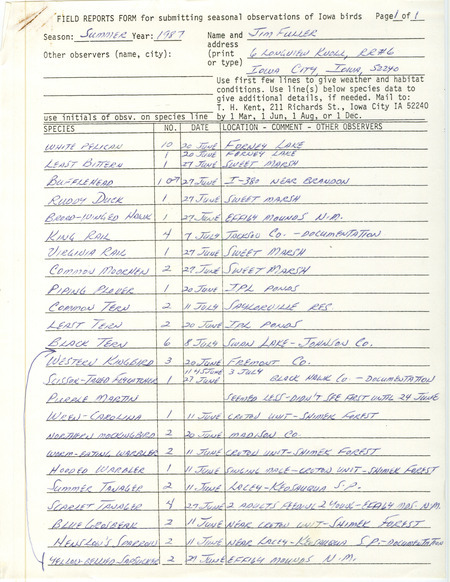 FIELD REPORTS FORM for submitting seasonal observations of Iowa birds Page 1 of 1
Season: SUMMER Year: 1987 Name and JIM FULLER
address
Other observers (name, city): (print 6 LONGVIEW KNOLL, RR#6
or type) IOWA CITY, IOWA, 52240
Use first few lines to give weather and habitat
conditions. Use line(s) below species data to
give additional details, if needed. Mail to:
T. H. Kent, 211 Richards St., Iowa City IA 52240
use initials of obsv. on species line by 1 Mar, 1 Jun, 1 Aug, or 1 Dec.
SPECIES NO. DATE LOCATION - COMMENT - OTHER OBSERVERS
WHITE PELICAN 10 20 JUNE FORNEY LAKE
1 20 JUNE FORNEY LAKE
LEAST BITTERN 1 27 JUNE SWEET MARSH
BUFFLEHEAD 1 27 JUNE I-380 NEAR BRANDON
RUDDY DUCK 1 27 JUNE SWEET MARSH
BROAD-WINGED HAWK 1 27 JUNE EFFIGY MOUNDS N.M.
KING RAIL 4 7 JULY JACKSON CO. - DOCUMENTATION
VIRGINIA RAIL 1 27 JUNE SWEET MARSH
COMMON MOORHEN 2 27 JUNE SWEET MARSH
PIPING PLOVER 1 20 JUNE IPL PONDS
COMMON TERN 2 11 JULY SAYLORVILLE RES.
LEAST TERN 2 20 JUNE IPL PONDS
BLACK TERN 6 8 JULY SWAN LAKE - JOHNSON CO.
WESTERN KINGBIRD 3 20 JUNE FREMONT CO.
3 JULY
SCISSOR-TAILED FLYCATCHER 1 27 JUNE BLACK HAWK CO. - DOCUMENTATION
PURPLE MARTIN SEEMED LESS - DIDN'T SEE FIRST UNTIL 24 JUNE
WREN - CAROLINA 1 11 JUNE CROTON UNIT - SHIMEK FOREST
NORTHERN MOCKINGBIRD 2 20 JUNE MADISON CO.
WORM-EATING WARBLER 2 11 JUNE CROTON UNIT - SHIMEK FOREST
HOODED WARBLER 1 11 JUNE SINGING MALE - CROTON UNIT - SHIMEK FOREST
SUMMER TANAGER 2 11 JUNE LACEY - KEOSAUQUA S.P.
SCARLET TANAGER 4 27 JUNE 2 ADULTS FEEDING 2 YOUNG - EFFIGY MDS. N.M.
BLUE GROSBEAK 2 11 JUNE NEAR CROTON UNIT - SHIMEK FOREST
HENSLOW'S SPARROW 2 11 JUNE NEAR LACEY - KEOSAUQUA S.P. - DOCUMENTATION
YELLOW-BELLIED SAPSUCKER 2 27 JUNE EFFIGY MOUNDS N.M.